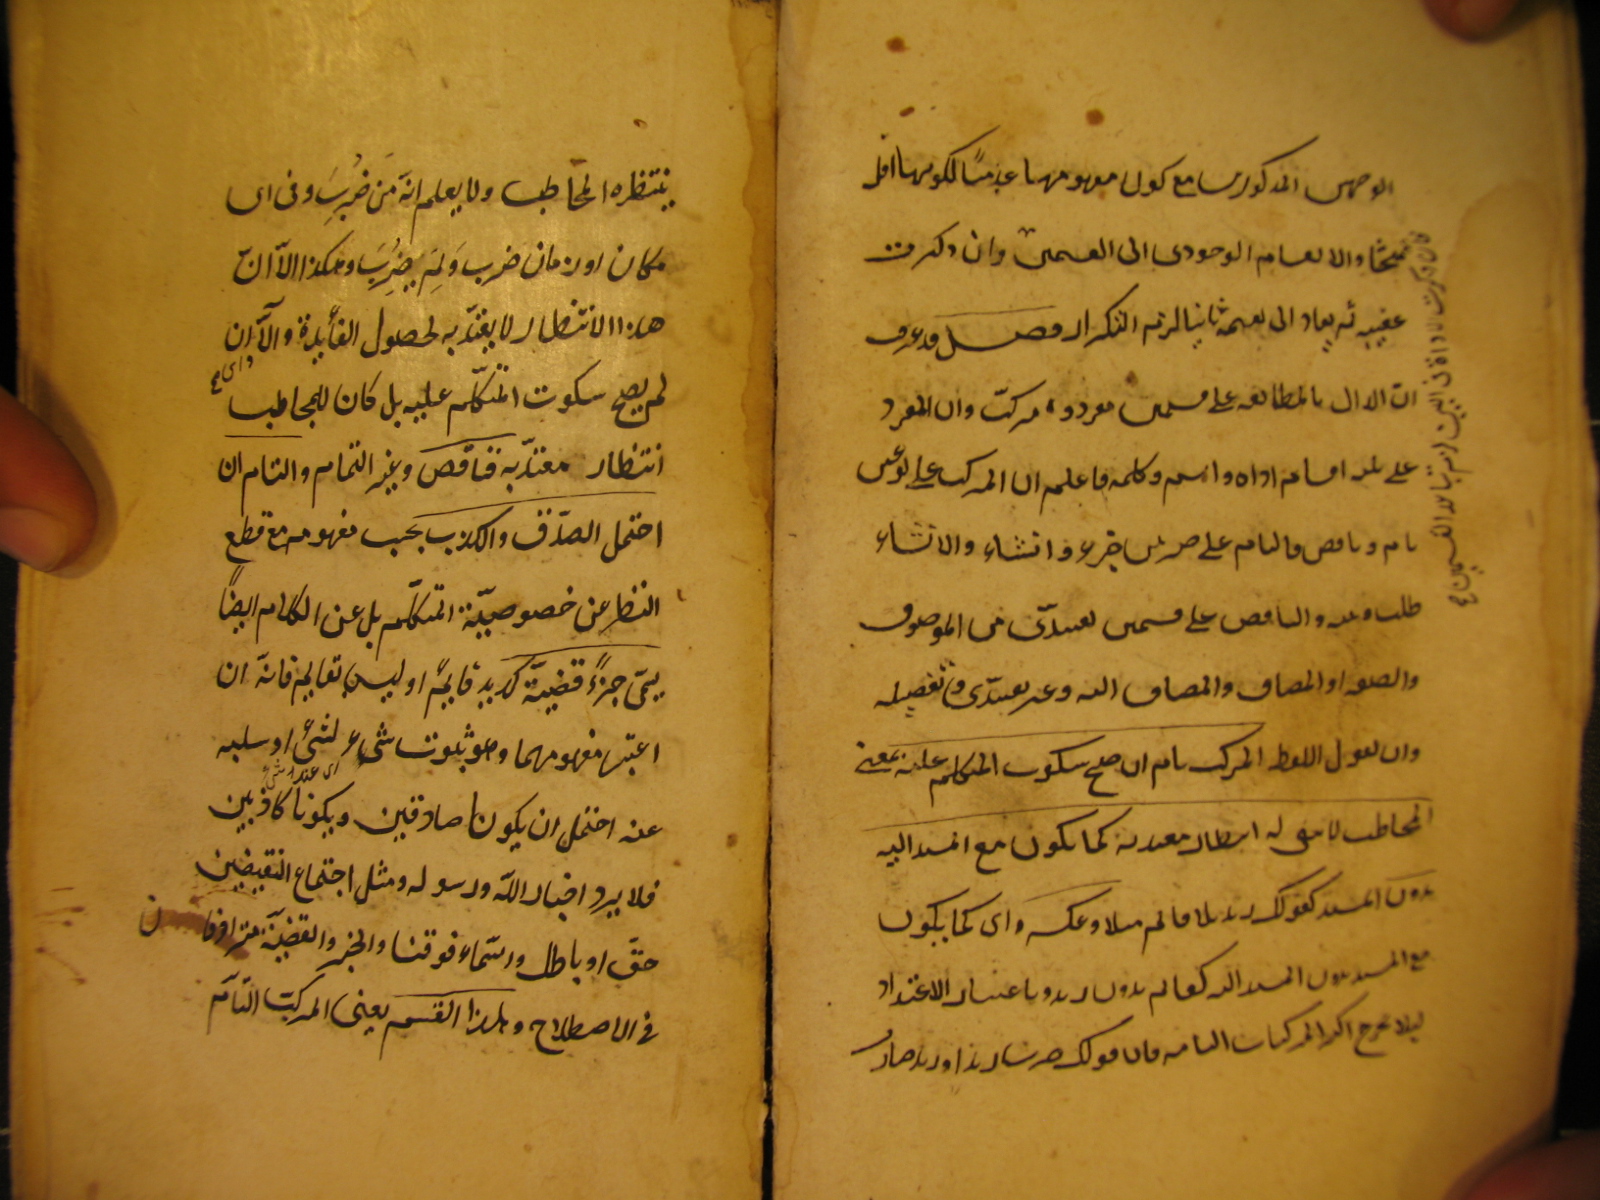 الوجهين المذكورين مع كون مفهومهما عدميا لكونهما اقل
مبحثا والا لعام الوجودى الى القسمين وان ذكرت
عقيبه ثم يعاد الى تقسيمه ثانيا لزم التكرار فصل قد عرف
ان الدال بالمطابقة على قسمين مفرد و مركب وان المفرد
على ثلثة اقسام اداة واسم وكلمة فاعلم ان المركب على نوعين
تام وناقص فالتام على ضربين خبرء وانشاء والانشاء
طلب وغيره والناقص على قسمين تقييدى من الموصوف
والصفة او المضاف والمضاف اليه وغير تقييدى وتفصيله
وان نقول اللفظ المركب تام ان صح سكوت المتكلم عليه بمعنى
المخاطب لا يبقى له انتظار معتد به كما يكون مع المسند اليه
بدون المسند كقولك زيد بلا قائم مثلا وعكسه واى كما يكون
مع المسند بدون المسند اليه كقائم بدون زيد وباعتبار الاعتداد
لئلا يخرج اكثر المركبات التامة فان قولك ضربت زيدا وزيد ضارب
فان ذكرت الاداة فى البين لم
القسمين
ينتظره المخاطب ولا يعلم انه مَن ضُرِبَ وفى اى
مكان او زمان ضرب ولِمَ ضُرِبَ وهكذا الا ان
هذا الانتظار لا يعتدّ به لحصول الفائدة والا ان
واى
لم يصح سكوت المتكلّم عليه بل كان للمخاطب
انتظار معتدّ به فناقص وغير التمام والتام ان
احتمل الصدق والكذب بحسب مفهومه مع قطع
النظر عن خصوصيّة المتكلّم بل عن الكلام ايضاً
يسمّى خبراً وقضيّة كزيد قايم او ليس بقايم فانه ان
اعتبر مفهومهما وهو ثبوت شىء لشئ او سلبه
اى عند
عنه احتمل ان يكونا صادقين ويكونا كاذبين
فلا يرد اخبار الله ورسوله ومثل اجتماع النقيضين
حقّ او باطل والسّماء فوقنا والخبر والقضيّة مترادفان
فى الاصطلاح وهذا القسم يعنى المركب التّام